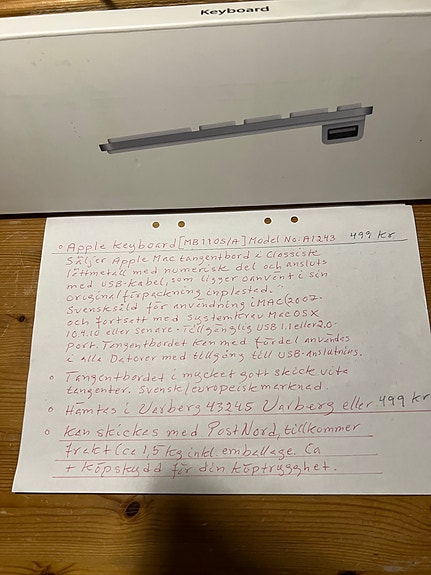 Keyboard
o Apple Keyboard [MB110S/A] Model No: A1243 499 kr
Säljer Apple Mac tangentbord i Classiskt
lättmetall med numerisk del och ansluts
med USB-kabel, som ligger oanvänt i sin
originalförpackning inplastad.
Svensksåld för användning iMAC (2007-
och fortsatt med systemkrav Mac OSX
10.4.10 eller senare. Tillgänglig USB 1.1 eller 2.0-
port. Tangentbordet kan med fördel användas
i alla Datorer med tillgång till USB-anslutning.
o Tangentbordet i mycket gott skick vita
tangenter. Svensk/europeisk marknad.
o Hämtas i Varberg 43245 Varberg eller 499 kr
o Kan skickas med PostNord, tillkommer
frakt (ca 1,5 kg inkl. emballage. Ca
+ köpskydd för din köptrygghet.